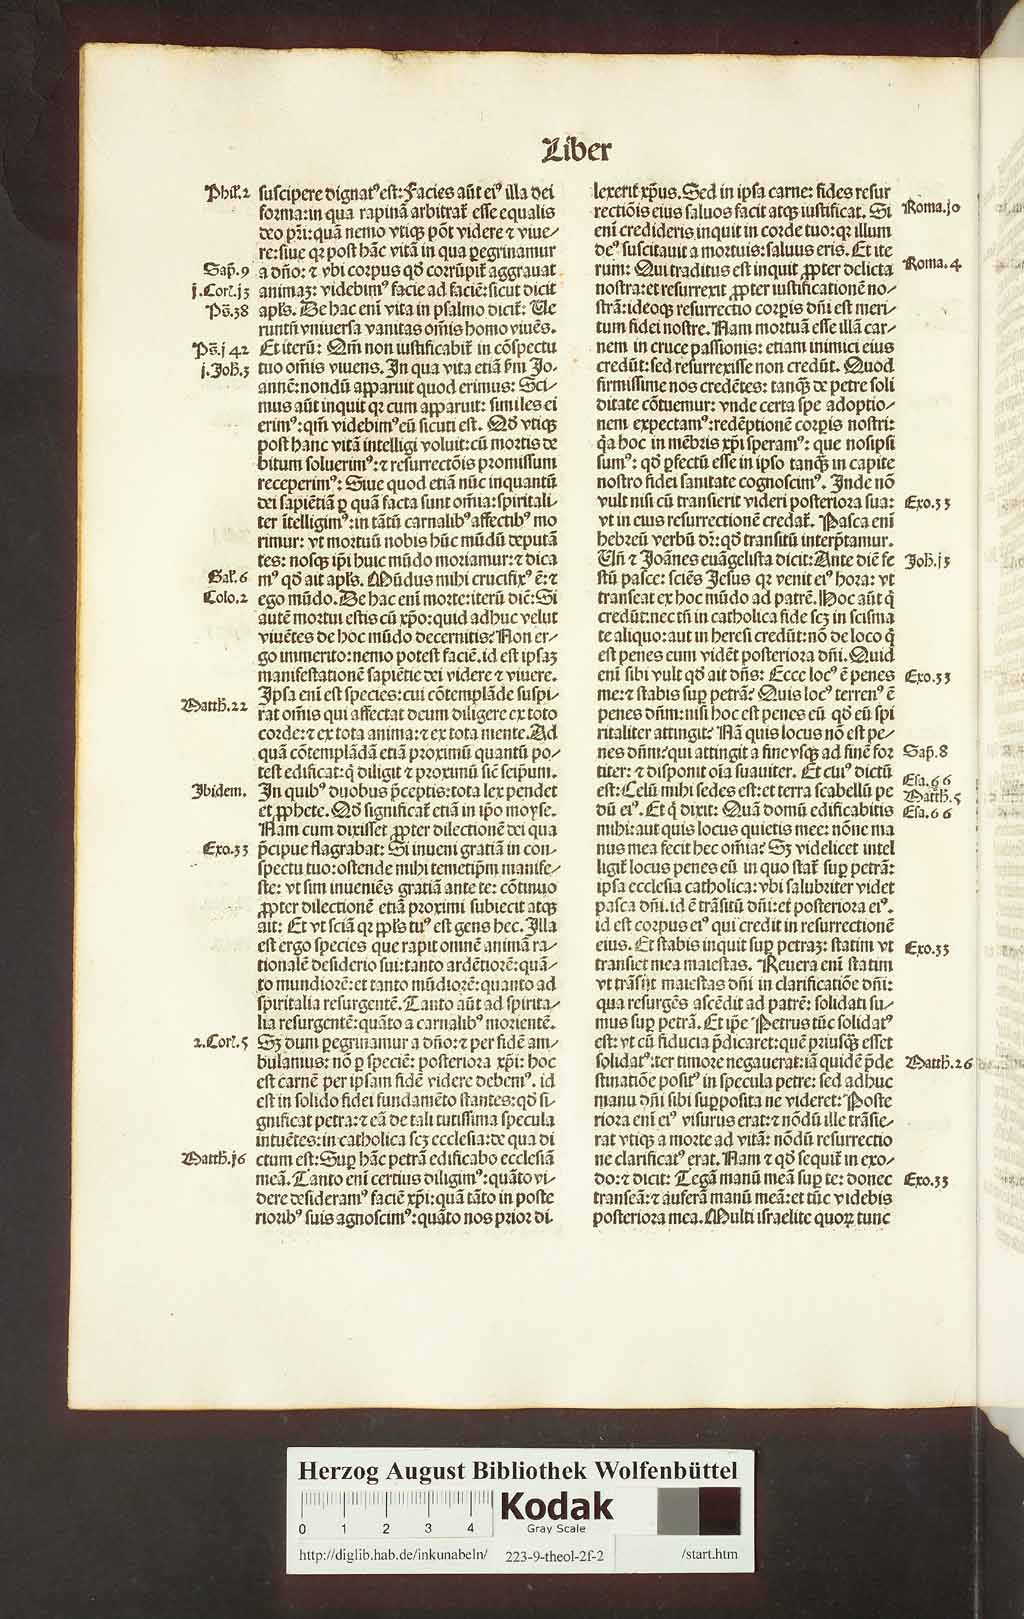 Liber
Phil̄.2 suscipere dignatꝰ est: Facies aūt eiꝰ illa dei
forma: in qua rapinā arbitrat̄ esse equalis
deo p̄ri: quā nemo vtiqꝫ pōt videre ⁊ viue⸗
re: siue qꝛ post hāc vitā in qua ꝑegrinamur
Sap̄.9 a dn̄o: ⁊ vbi corpus qd̄ corrūpit̄ aggrauat
j.Cor̄.j3 animaꝫ: videbimꝰ facie ad faciē: sicut dicit
Ps̄.38 apl̄s. De hac eni vita in psalmo dicit̄: Ue
runtn̄ vniuersa vanitas om̄is homo viuēs.
Ps̄.j42 Et iterū: Qm̄ non iustificabit̄ in cōspectu
j.Joh̄.3 tuo om̄is viuens. In qua vita etiā s̄m Jo⸗
annē: nondū apparuit quod erimus: Sci⸗
mus aūt inquit qꝛ cum apparuit: similes ei
erimꝰ: qm̄ videbimꝰ eū sicuti est. Qd̄ vtiqꝫ
post hanc vitā intelligi voluit: cū mortis de
bitum soluerimꝰ: ⁊ resurrectōis promissum
receperimꝰ: Siue quod etiā nūc inquantū
dei sapiētiā ꝑ quā facta sunt om̄ia: spiritali⸗
ter ītelligimꝰ: in tātū carnalibꝰ affectibꝰ mo
rimur: vt mortuū nobis hūc mūdū deputā
tes: nosqꝫ ip̄i huic mūdo moriamur: ⁊ dica
Gal̄.6 mꝰ qd̄ ait apl̄s. Mūdus mihi crucifixꝰ ē: ⁊
Colo.2 ego mūdo. De hac eni morte: iterū dic̄: Si
autē mortui estis cū xp̄o: quid adhuc velut
viuētes de hoc mūdo decernitis? Non er⸗
go immerito: nemo potest faciē. id est ipsaꝫ
manifestationē sapiētie dei videre ⁊ viuere.
Ipsa eni est species: cui cōtemplāde suspi⸗
Matth̄.22 rat om̄is qui affectat deum diligere ex toto
corde: ⁊ ex tota anima: ⁊ ex tota mente. Ad
quā cōtemplādā etiā proximū quantū po⸗
test edificat: q̄ diligit ⁊ proximū sic̄ seip̄um.
Ibidem. In quibꝰ duobus p̄ceptis: tota lex pendet
et ꝓphete. Qd̄ significat̄ etiā in ip̄o moyse.
Nam cum dixisset ꝓpter dilectionē dei qua
Exo.33 p̄cipue flagrabat: Si inueni gratiā in con⸗
spectu tuo: ostende mihi temetip̄m manife⸗
ste: vt sim inueniēs gratiā ante te: cōtinuo
ꝓpter dilectionē etiā proximi subiecit atqꝫ
ait: Et vt sciā qꝛ ppl̄s tuꝰ est gens hec. Illa
est ergo species que rapit omnē animā ra⸗
tionalē desiderio sui: tanto ardētiorē: quā⸗
to mundiorē: et tanto mūdiorē: quanto ad
spiritalia resurgentē. Tanto aūt ad spirita⸗
lia resurgentē: quāto a carnalibꝰ morientē.
2.Cor̄.5 Sꝫ dum ꝑegrinamur a dn̄o: ⁊ per fidē am⸗
bulamus: nō ꝑ speciē: posteriora xp̄i: hoc
est carnē per ipsam fidē videre debemꝰ. id
est in solido fidei fundamēto stantes: qd̄ si⸗
gnificat petra: ⁊ eā de tali tutissima specula
intuētes: in catholica scꝫ ecclesia: de qua di
Matth̄.j6 ctum est: Suꝑ hāc petrā edificabo ecclesiā
meā. Tanto eni certius diligimꝰ: quāto vi⸗
dere desideramꝰ faciē xp̄i: quā tāto in poste
rioribꝰ suis agnoscimꝰ: quāto nos prior di⸗
lexerit xp̄us. Sed in ipsa carne: fides resur
rectiōis eius saluos facit atqꝫ iustificat. Si Roma.j0
eni credideris inquit in corde tuo: qꝛ illum
deꝰ suscitauit a mortuis: saluus eris. Et ite
rum: Qui traditus est inquit ꝓpter delicta Roma.4
nostra: et resurrexit ꝓpter iustificationē no⸗
strā: ideoqꝫ resurrectio corꝑis dn̄i est meri⸗
tum fidei nostre. Nam mortuā esse illā car⸗
nem in cruce passionis: etiam inimici eius
credūt: sed resurrexisse non credūt. Quod
firmissime nos credētes: tanqꝫ̄ de petre soli
ditate cōtuemur: vnde certa spe adoptio⸗
nem expectamꝰ: redēptionē corꝑis nostri:
q̄a hoc in mēbris xp̄i speramꝰ: que nosipsi
sumꝰ: qd̄ ꝑfectū esse in ipso tanqꝫ̄ in capite
nostro fidei sanitate cognoscimꝰ. Inde nō
vult nisi cū transierit videri posteriora sua: Exo.33
vt in eius resurrectionē credat̄. Pasca eni
hebreū verbū dr̄: qd̄ transitū interp̄tamur.
Un̄ ⁊ Joānes euāgelista dicit: Ante diē fe Joh̄.j3
stū pasce: sciēs Jesus qꝛ venit eiꝰ hora: vt
transeat ex hoc mūdo ad patrē. Hoc aūt q̄
credūt: nec tn̄ in catholica fide scꝫ in scisma
te aliquo: aut in heresi credūt: nō de loco q̄
est penes eum vidēt posteriora dn̄i. Quid
eni sibi vult qd̄ ait dn̄s: Ecce locꝰ ē penes Exo.33
me: ⁊ stabis suꝑ petrā? Quis locꝰ terrenꝰ ē
penes dn̄m: nisi hoc est penes eū qd̄ eū spi
ritaliter attingit? Nā quis locus nō est pe⸗
nes dn̄m: qui attingit a fine vsqꝫ ad finē for Sap̄.8
titer: ⁊ disponit oīa suauiter. Et cuiꝰ dictū
est: Celū mihi sedes est: et terra scabellū pe Esa.66
Matth̄.5
dū eiꝰ. Et q̄ dixit: Quā domū edificabitis Esa.66
mihi: aut quis locus quietis mee: nōne ma
nus mea fecit hec om̄ia? Sꝫ videlicet intel
ligit̄ locus penes eū in quo stat̄ suꝑ petrā:
ipsa ecclesia catholica: vbi salubriter videt
pasca dn̄i. id ē trāsitū dn̄i: et posteriora eiꝰ.
id est corpus eiꝰ qui credit in resurrectionē
eius. Et stabis inquit suꝑ petraꝫ: statim vt Exo.33
transiet mea maiestas. Reuera eni statim
vt trāsijt maiestas dn̄i in clarificatiōe dn̄i:
qua resurgēs ascēdit ad patrē: solidati su⸗
mus suꝑ petrā. Et ip̄e Petrus tūc solidatꝰ
est: vt cū fiducia p̄dicaret: quē priusqꝫ̄ esset
solidatꝰ: ter timore negauerat: iā quidē p̄de Matth̄.26
stinatiōe positꝰ in specula petre: sed adhuc
manu dn̄i sibi supposita ne videret: Poste
riora eni eiꝰ visurus erat: ⁊ nōdū ille trāsie⸗
rat vtiqꝫ a morte ad vitā: nōdū resurrectio
ne clarificatꝰ erat. Nam ⁊ qd̄ sequit̄ in exo⸗
do: ⁊ dicit: Tegā manū meā suꝑ te: donec Exo.33
transeā: ⁊ auferā manū meā: et tūc videbis
posteriora mea. Multi israelite quoꝝ tunc
Herzog August Bibliothek Wolfenbüttel
0 1 2 3 4
Kodak
Gray Scale
http://diglib.hab.de/inkunabeln/ 223-9-theol-2f-2 /start.htm